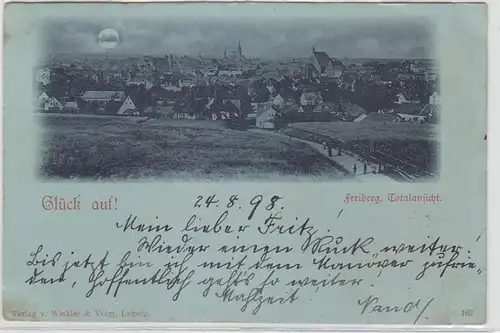 Glück auf!
24.8.98.
Freiberg, Totalansicht.
Mein lieber Fritz!
Wieder einen Ruck weiter!
Bis jetzt bin ich mit dem Manöver zufrie-
den, hoffentlich geht's so weiter.
Mahlzeit
Verlag v. Winkler & Voigt, Leipzig.
162